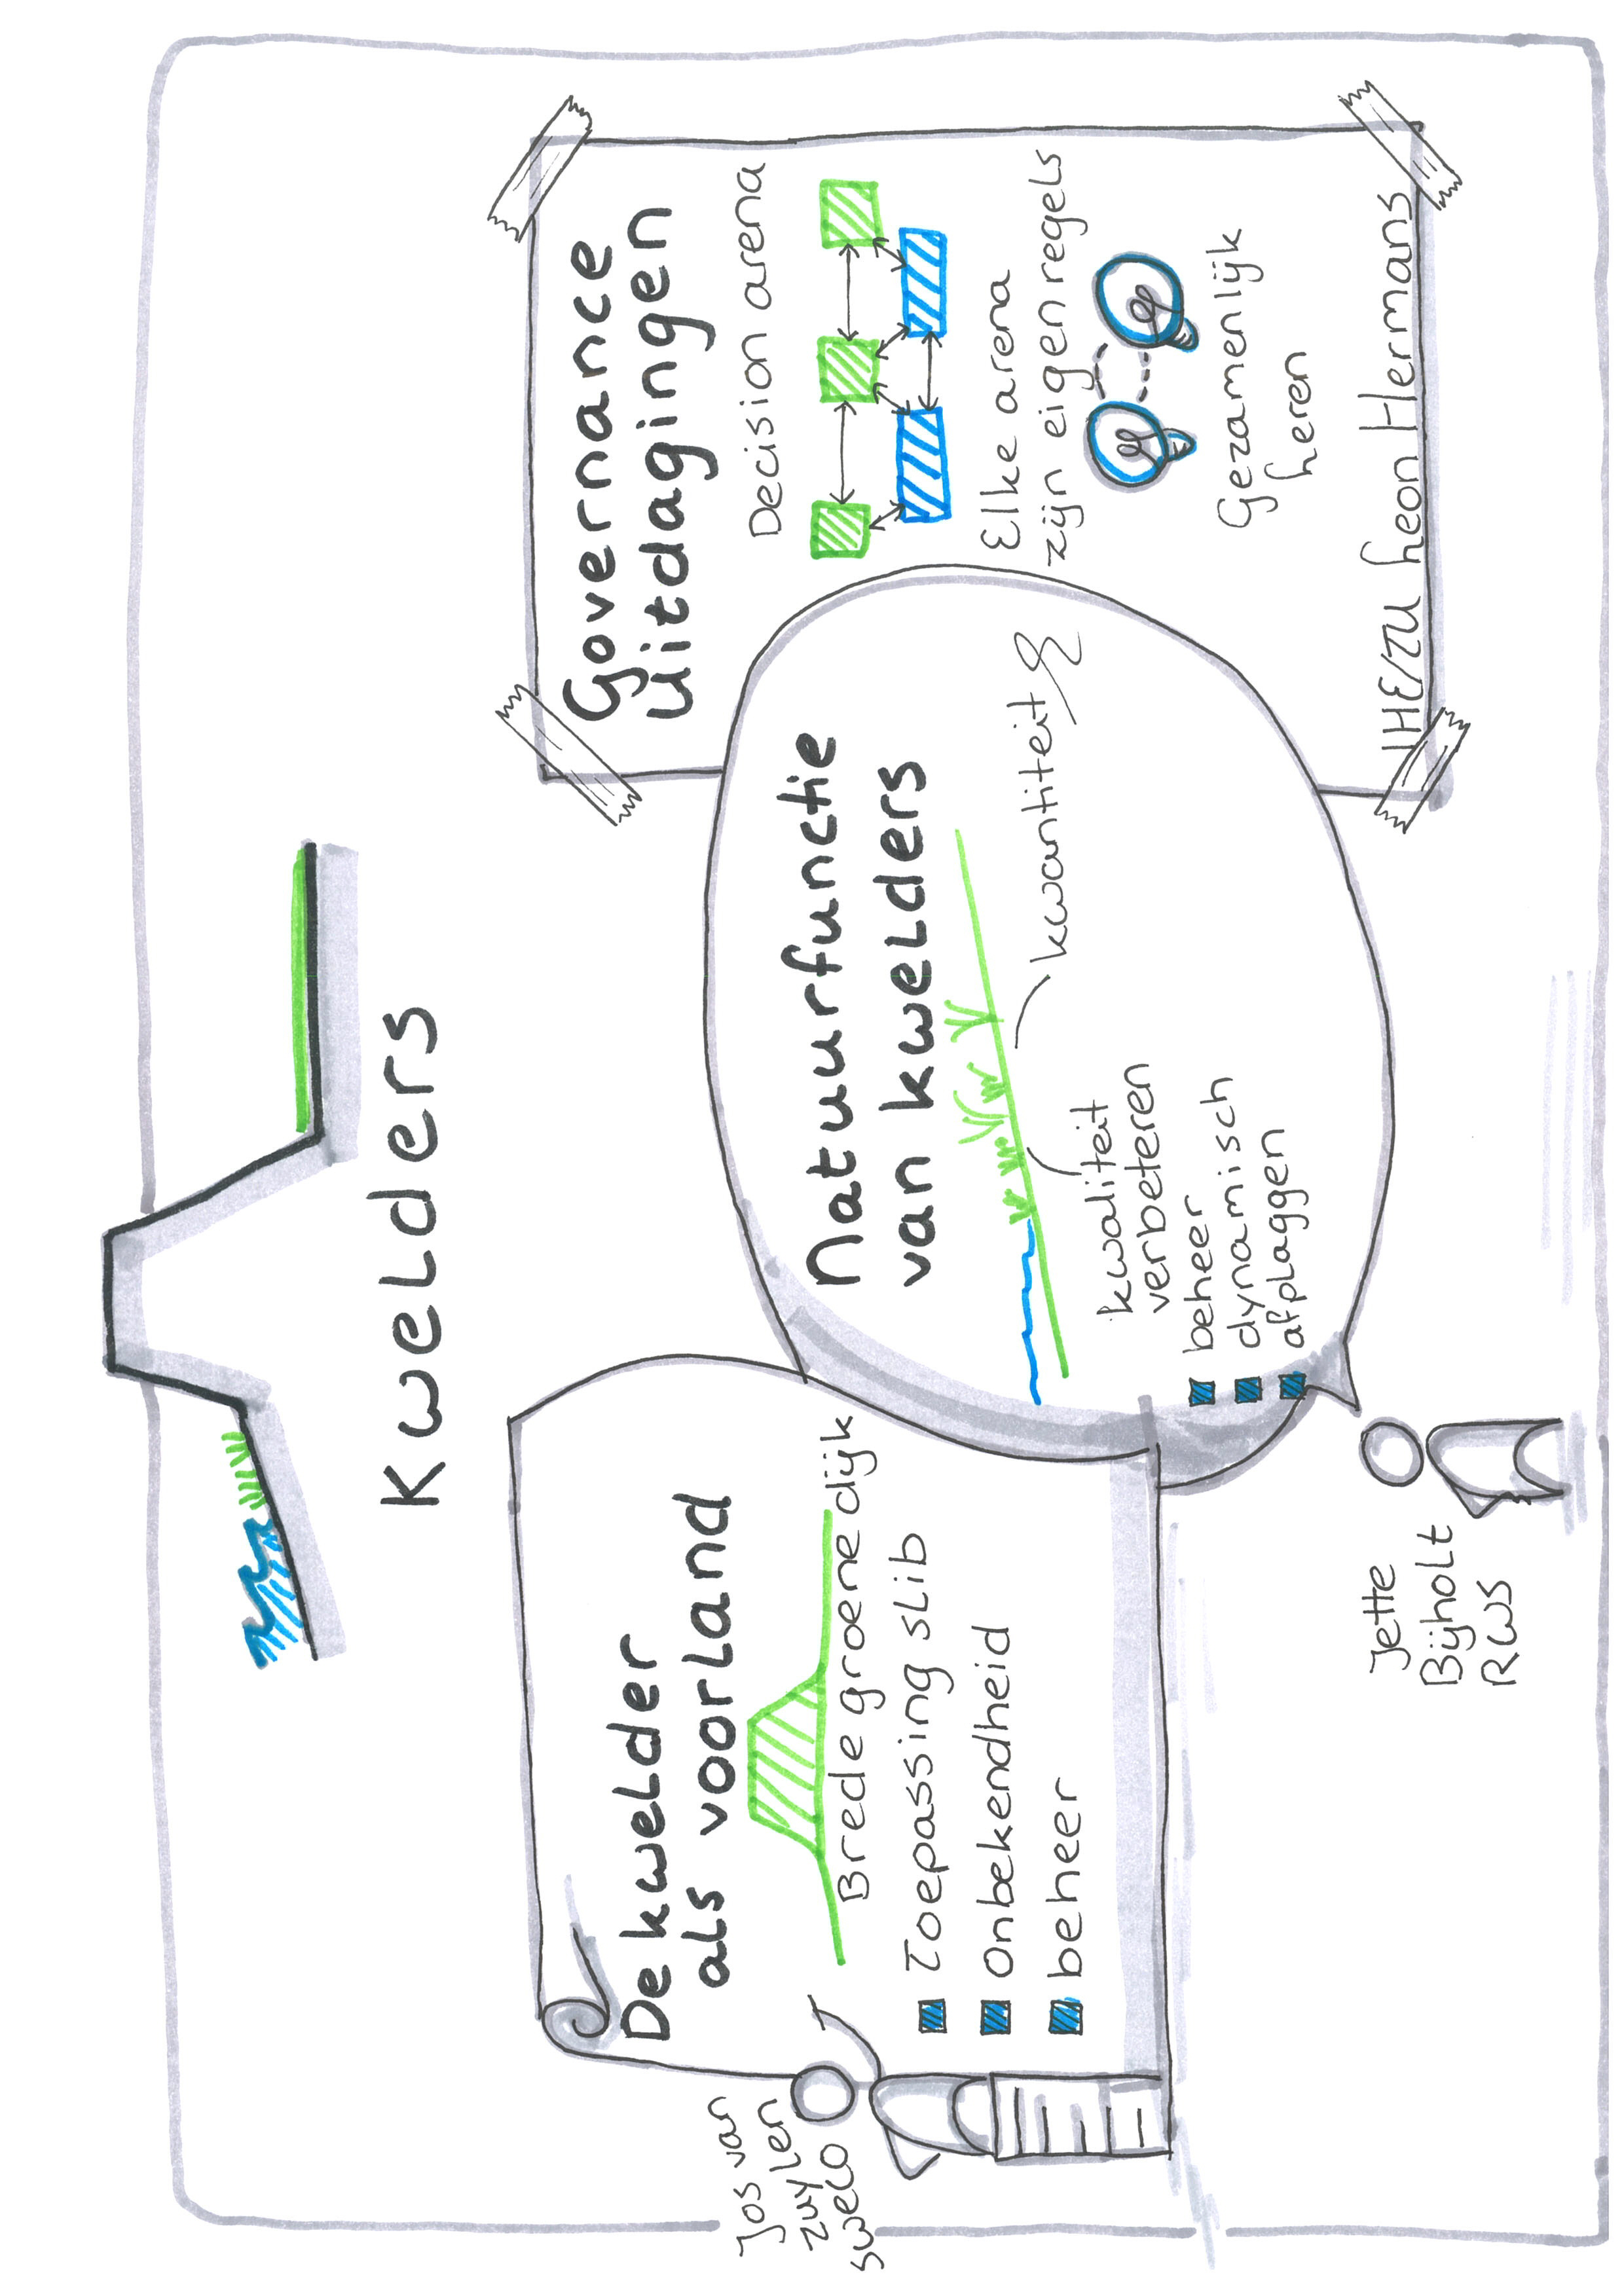 Kwelders
De kwelder
als voorland
Brede groene dijk
Toepassing slib
Onbekendheid
beheer
Jos van
Zuylen
swelo
Natuurfunctie
van kwelders
kwantiteit
kwaliteit
verbeteren
beheer
dynamisch
afplaggen
Jette
Bijholt
RWS
Governance
Uitdagingen
Decision arena
Elke arena
zijn eigen regels
Gezamenlijk
leren
Leon Hermans